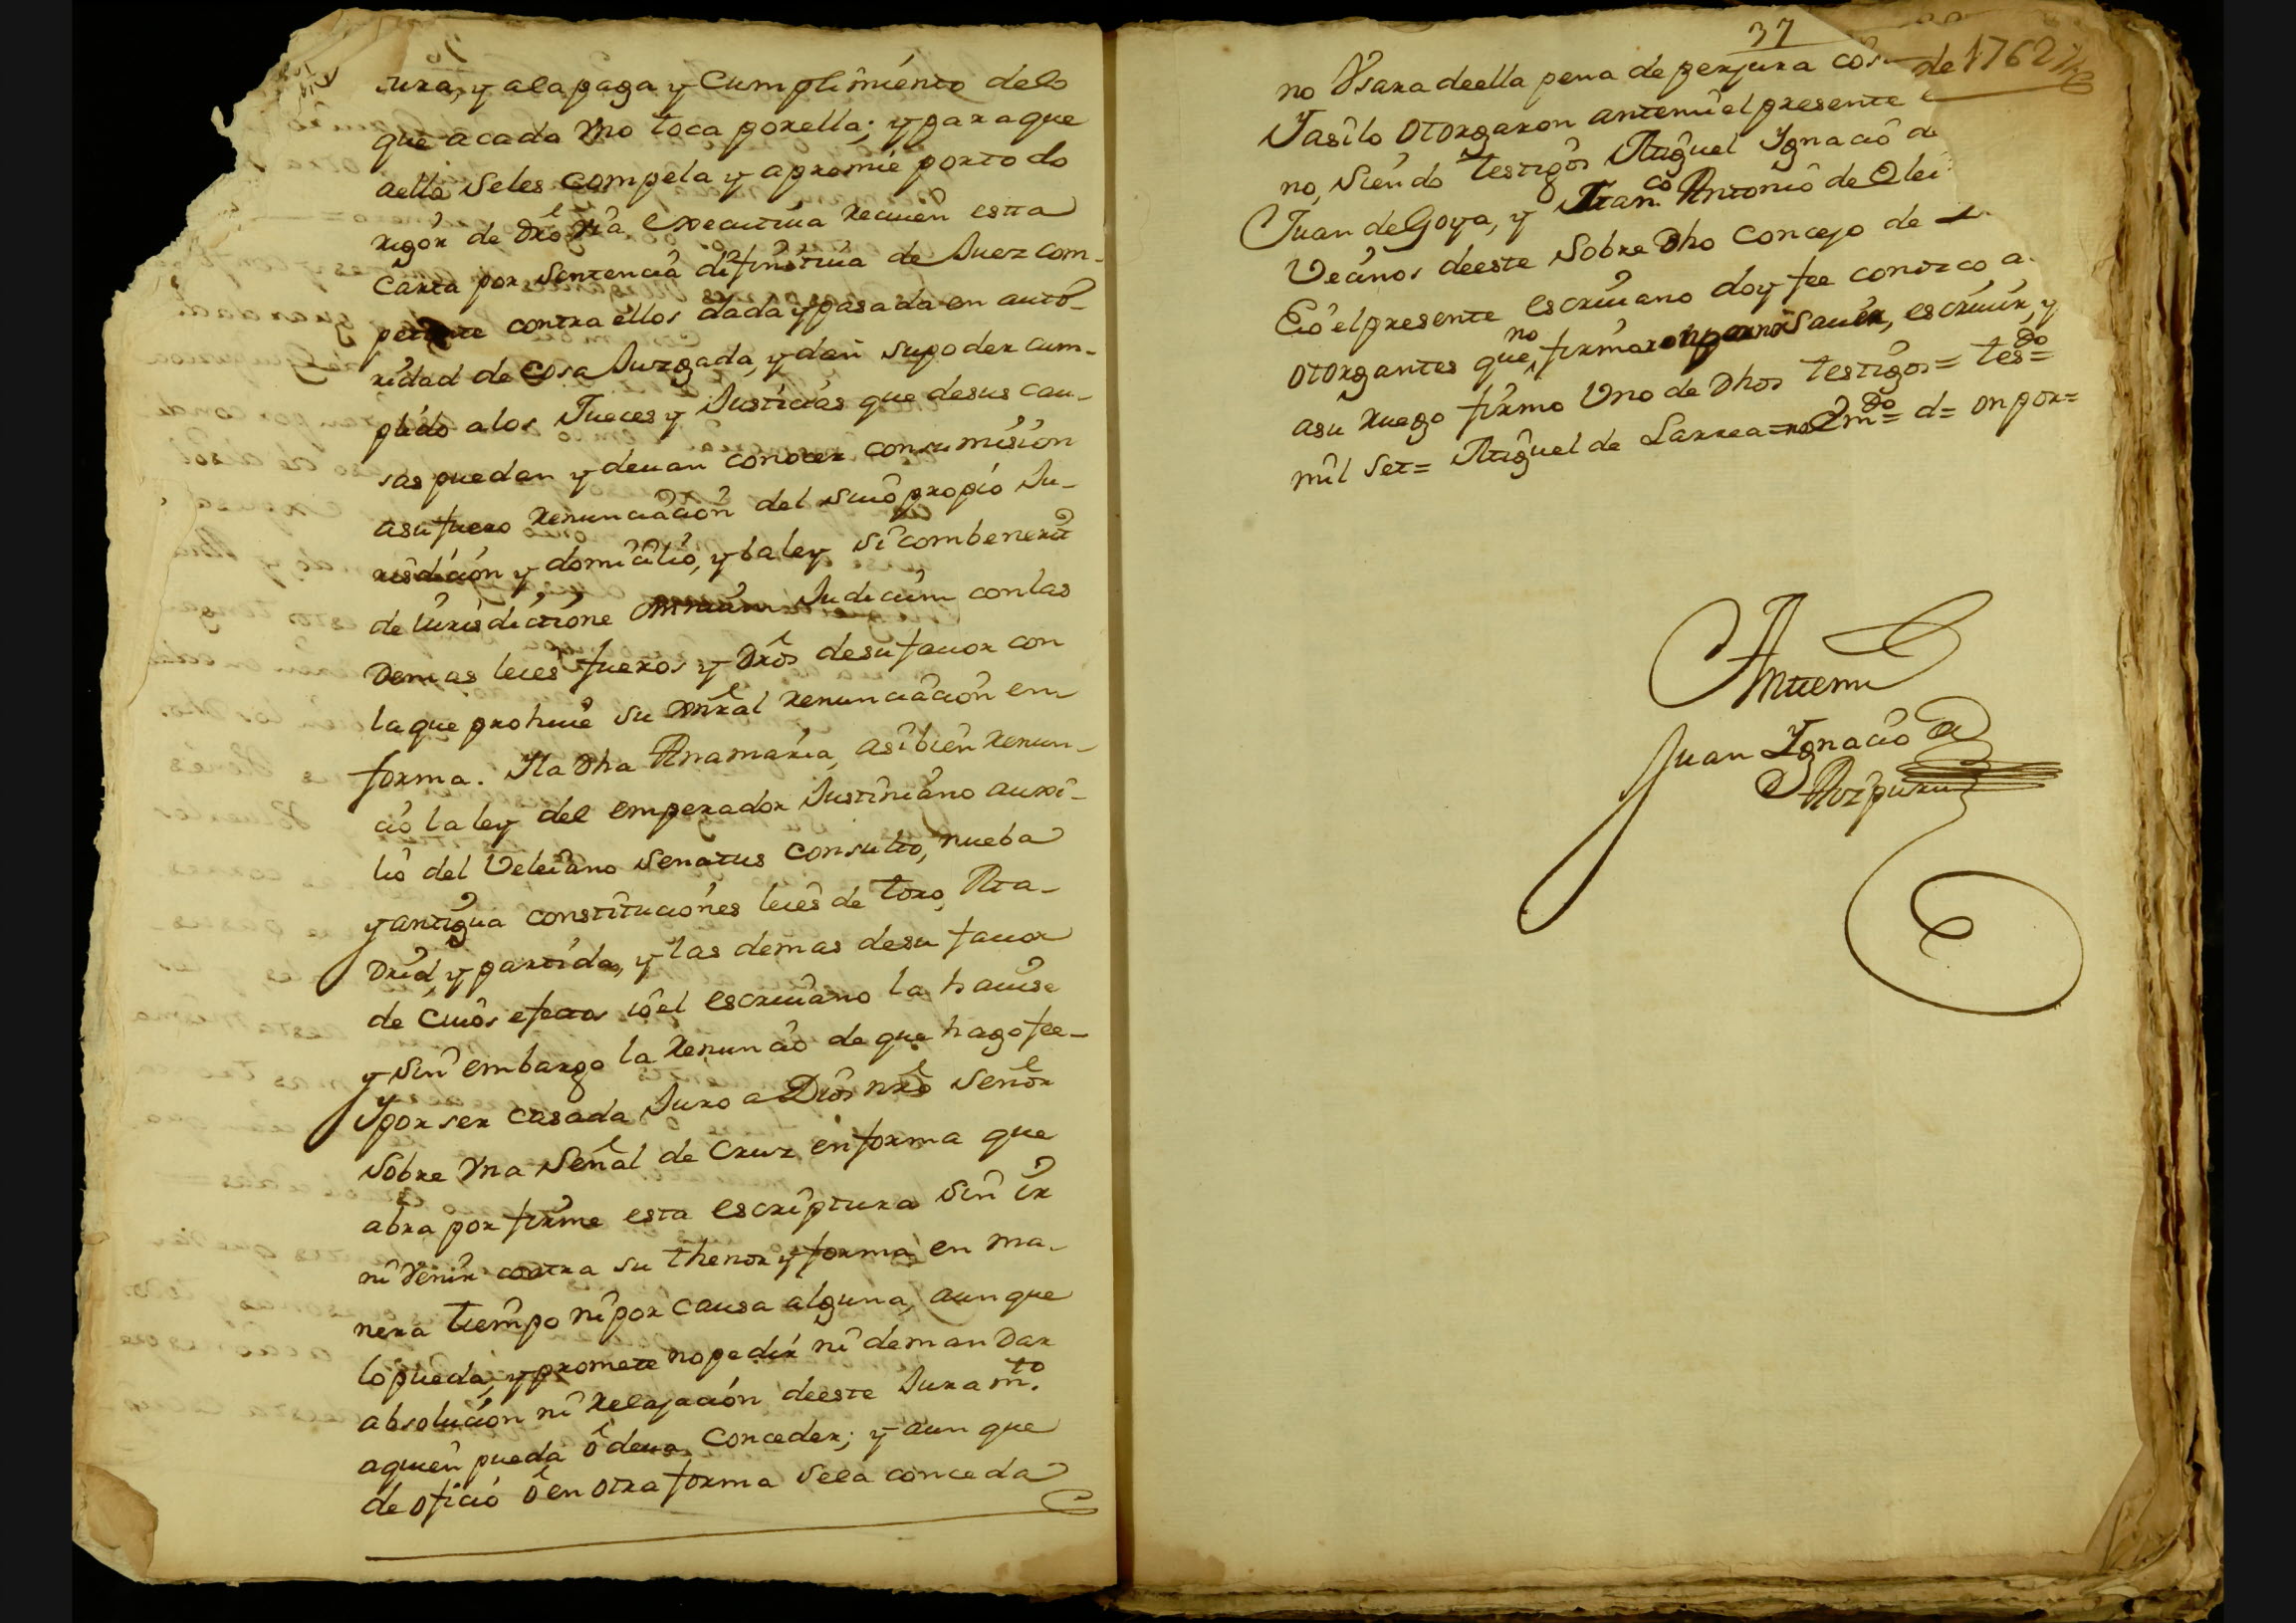 tura, y ala paga y Cumplimiento delo
que acada Vno toca por ella; y para que
aello seles compela y apremie por todo
rigor de dro Via executiua reciuen esta
Carta por sentencia difinitiua de Juez com-
petente contra ellos dada y pasada en auto-
ridad de Cosa Juzgada, y dan su poder cum-
plido alos Jueces y Justicias que desus cau-
sas puedan y deuan conocer consumision
asu fuero renunciacion del suio propio Ju-
risdicion y domicilio, y la ley si combenerit
de iurisdictione omnium Judicum con las
Demas leies fueros y dros desu fauor con
la que prohiue su gnral renunciacion en
forma. Y la dha Anamaria, asibien renun-
cio la ley del emperador Justiniano auxi-
lio del Veleiano senatus consulto, nueba
y antigua constituciones leies de toro, Ma-
drid, y partida, y las demas desu fauor
de cuios efectos io el escriuano la hauise
y sin embargo la renuncio de que hago fee-
Y por ser casada Juro a Dios nro señor
sobre Vna señal de Cruz en forma que
abra por firme esta escriptura sin ir
ni Venir contra su thenor y forma en ma-
nera tiempo ni por causa alguna, aunque
lo pueda, y promete no pedir ni demandar
absolucion ni relajacion deeste Juramto.
aquien pueda ô deua conceder; y aun que
de oficio ô en otra forma sela conceda
37
de 1762
no Vsara deella pena de perjura
Y asi lo otorgaron antemi el presente
no, siendo testigos Miguel Ygnacio de
Juan de Goya, y Franco Antonio de Olei
Vecinos deeste sobre dho Concejo de
E io el presente escriuano doy fee conozco a
otorgantes que no firmaron por no sauer, escriuir, y
asu ruego firmo Vno de dhos testigos = tesdo =
mil set = Miguel de Larrea = Emdo = d = on por =
Antemi
Juan Ygnacio de
Aozpuru